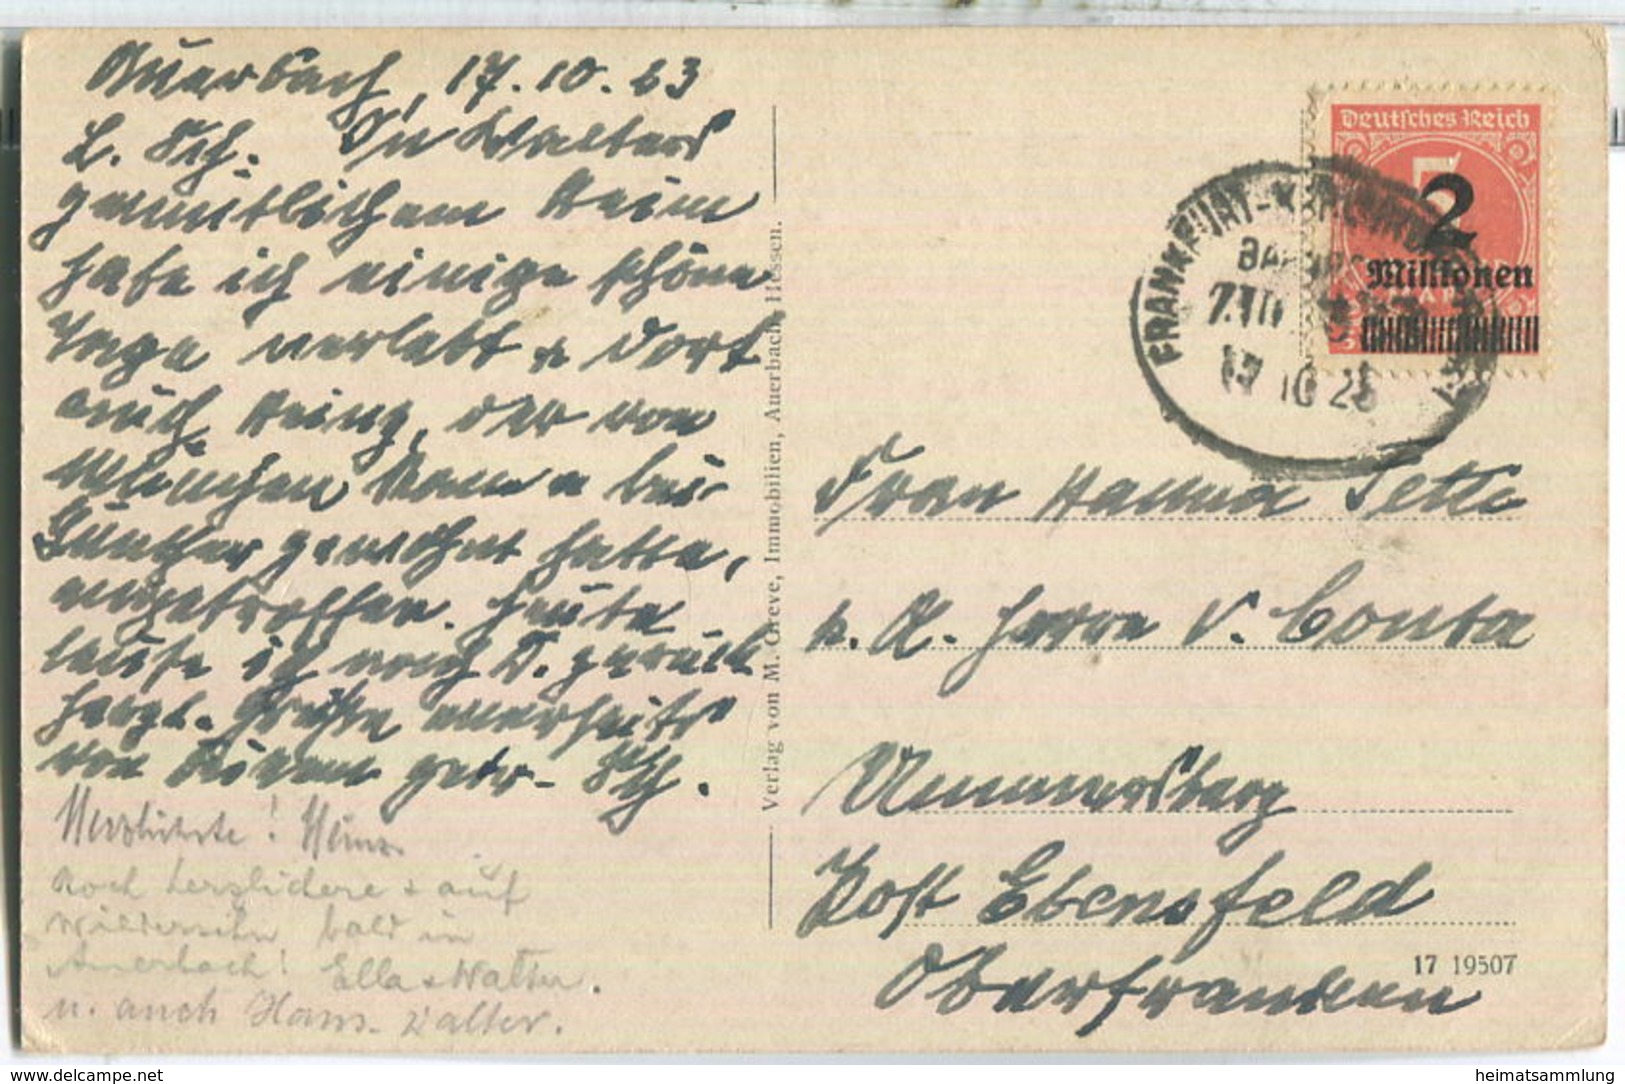 Auerbach, 17.10.23
L. Sch. In Walters
gemütlichem Heim
habe ich einige schöne
Tage verlebt u dort
auch Heinz, der von
München kam u bei
Günther gewohnt hatte,
angetroffen. Heute
ich nach D. zurück
Herzl. Grüße
von Deinem getr. Sch.
! Heinz.
Noch herzlichere + auf
Wiedersehn bald in
Auerbach! Ella + Walter.
u. auch Hans-Walter.
Verlag von M. Greve, Immobilien, Auerbach, Hessen.
Deutsches Reich
2
Millionen
BAHNPOST
ZUG
17 10 23
Frau Hanna Tette
p. A. Herrn v. Conta
Ummersberg
Post Ebensfeld
Oberfranken
17 19507
www.delcampe.net
heimatsammlung